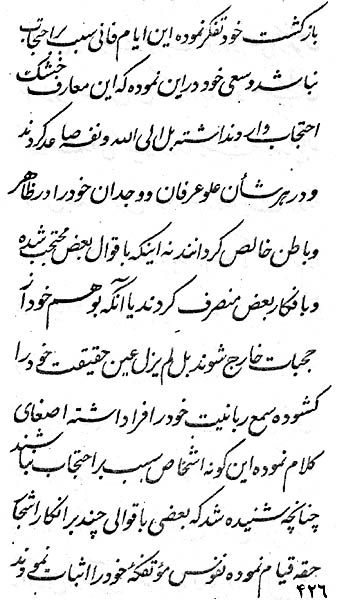 بازگشت خود تفکر نموده این ایام فانی سبب بر احتجاب
نباشد و سعی خود در این نموده که این معارف خشک
احتجاب وارد نداشته بل الی الله و نفسه صاعد گردند
و در هر شأن علو عرفان و وجدان خود را در ظاهر
و باطن خالص گردانند نه اینکه باقوال بعض محتجب شده
و بافکار بعض منصرف گردند یا آنکه بوهم خود از
حجبات خارج شوند بل لم یزل عین حقیقت خود را
گشوده سمع ربانیت خود را فرا داشته اصغای
کلام نموده این گونه اشخاص سبب بر احتجاب نباشند
چنانچه شنیده شد که بعضی باقوالی چند بر انکار اشجار
حقه قیام نموده نفوس مؤتفکهٔ خود را اثبات نمودند
۴۲۶